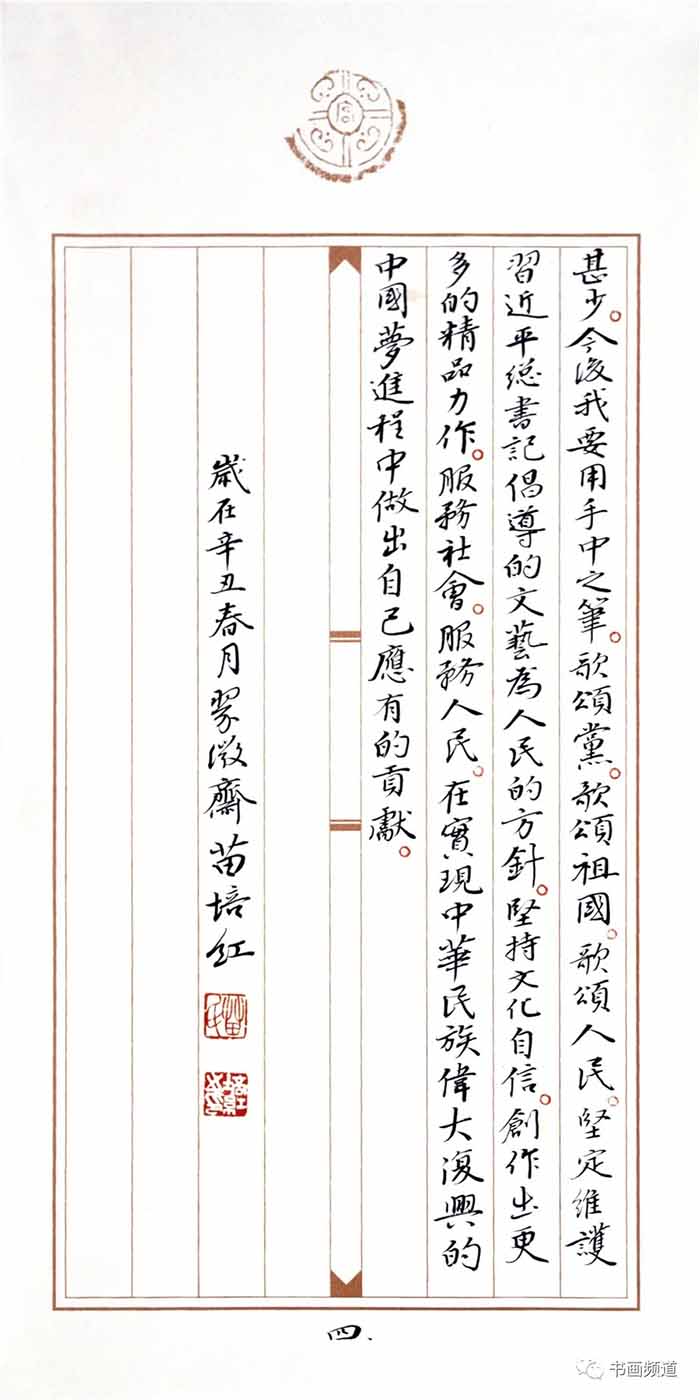 甚少。今後我要用手中之筆。歌頌黨。歌頌祖國。歌頌人民。堅定維護
習近平總書記倡導的文藝為人民的方針。堅持文化自信。創作出更
多的精品力作。服務社會。服務人民。在實現中華民族偉大復興的
中國夢進程中做出自己應有的貢獻。
歲在辛丑春月翠微齋苗培紅
四.
书画频道